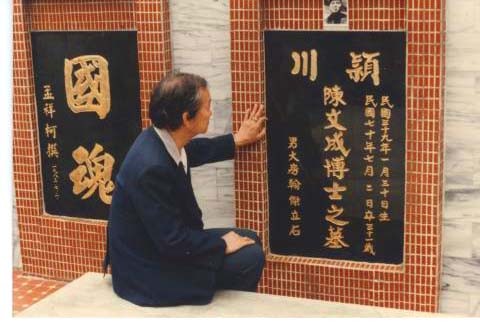 穎川
民國三十九年一月三十日生
民國七十年七月二日卒三十一歲
陳文成博士之墓
男大房翰傑立石
國魂
孟祥柯撰